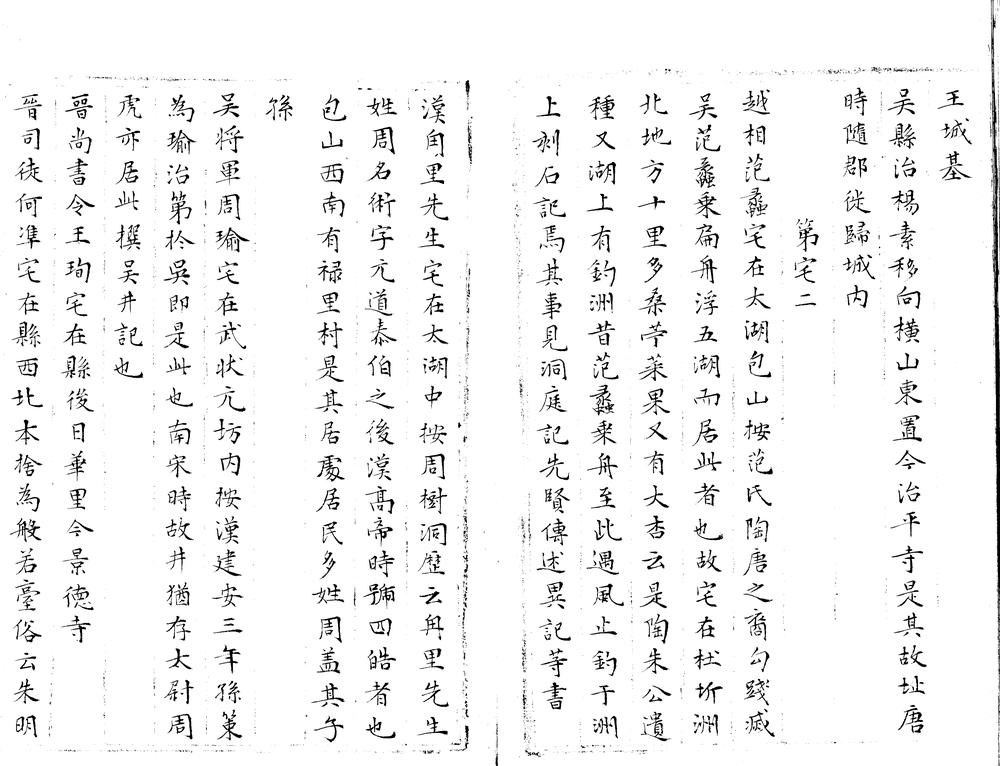 王城基
吴縣治楊素移向横山東置今治平寺是其故址唐
時隨郡徙歸城内
第宅二
越相范蠡宅在太湖包山按范氏陶唐之裔勾踐滅
吴范蠡乗扁舟浮五湖而居此者也故宅在杜圻洲
北地方十里多桑苧菓果又有大杏云是陶朱公遺
種又湖上有釣洲昔范蠡乗舟至此遇風止釣于洲
上刻石記焉其事見洞庭記先賢傳述異記等書
漢甪里先生宅在太湖中按周樹洞歷云甪里先生
姓周名術字元道泰伯之後漢髙帝時號四皓者也
包山西南有禄里村是其居處居民多姓周盖其子
孫
吴将軍周瑜宅在武状元坊内按漢建安三年孫策
為瑜治第扵吴即是此也南宋時故井猶存太尉周
虎亦居此撰吴井記也
晉尚書令王珣宅在縣後日華里今景德寺
晉司徒何準宅在縣西北本捨為般若臺俗云朱明